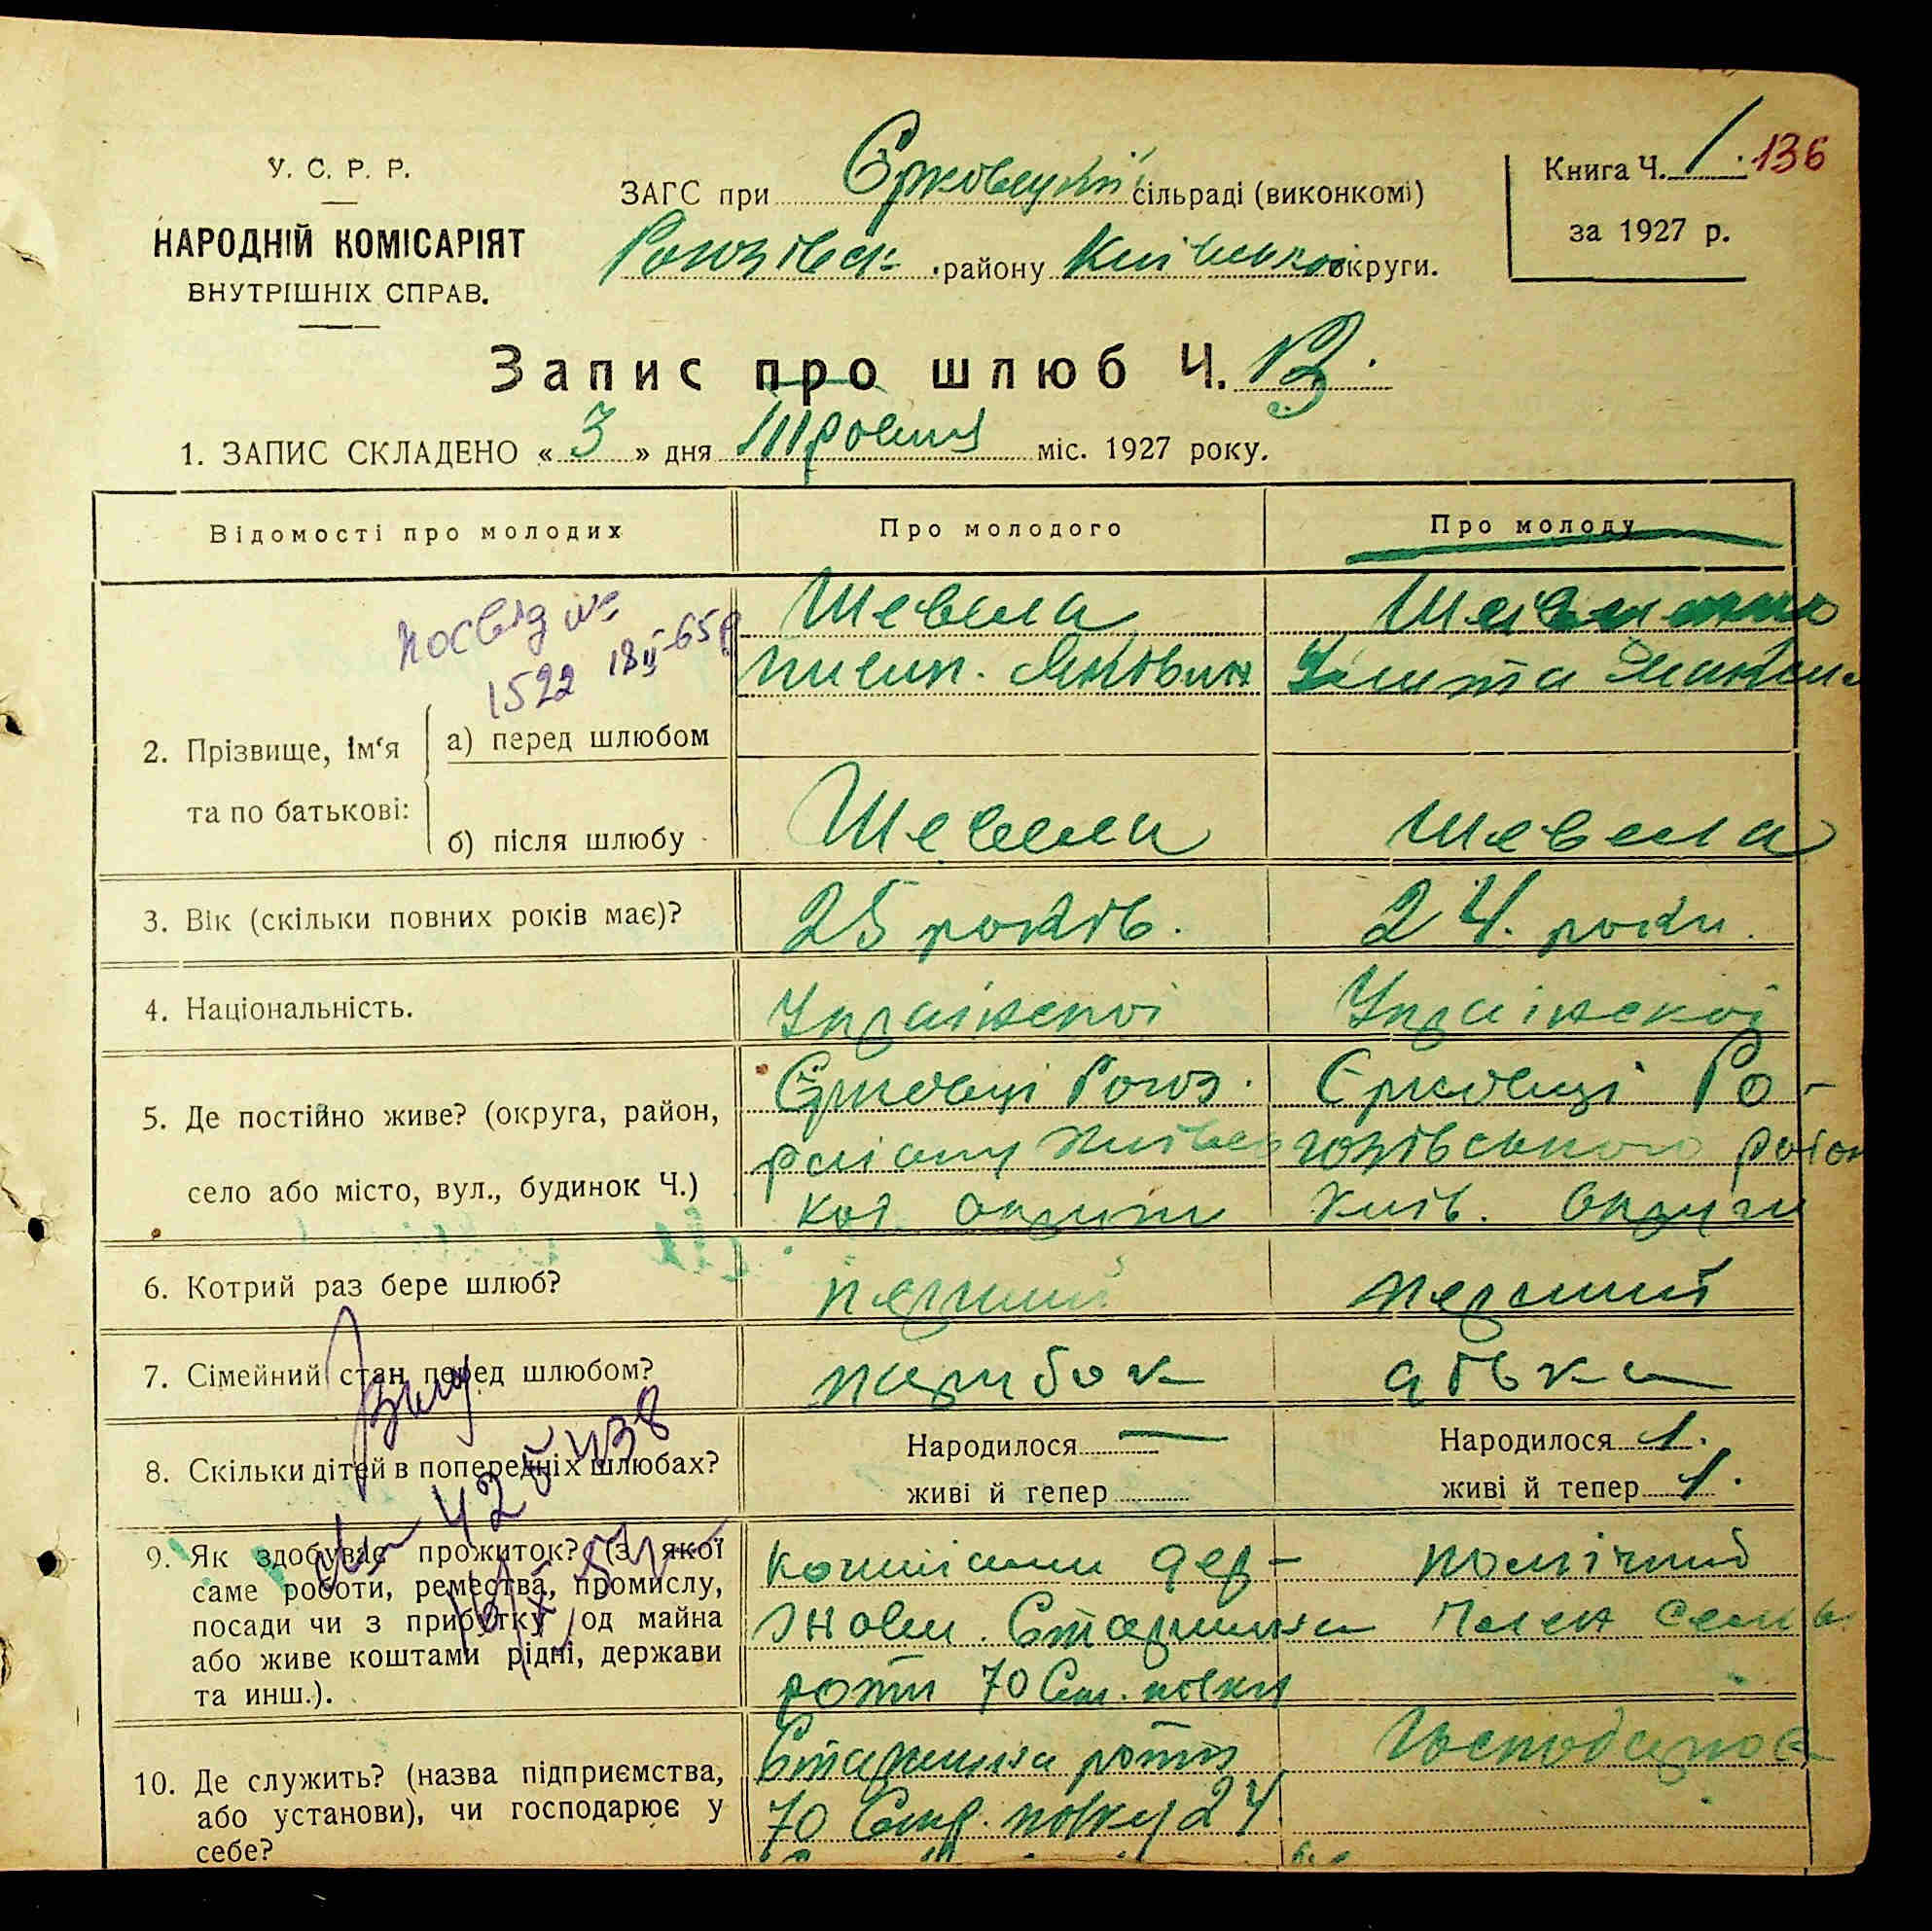 У. С. Р. Р.
НАРОДНІЙ КОМІСАРІЯТ
ВНУТРІШНІХ СПРАВ.
ЗАГС при Єрковецкій сільраді (виконкомі)
Рогозівск. району Київської округи.
Книга Ч. 1. 136
за 1927 р.
Запис про шлюб Ч. 13.
1. ЗАПИС СКЛАДЕНО « 3 » дня міс. 1927 року.
Відомості про молодих Про молодого Про молоду
посвід №
1522 18 II-65р
2. Прізвище, ім‘я та по батькові:
а) перед шлюбом
Шевела
Яковин
Улита
б) після шлюбу Шевела Шевела
3. Вік (скільки повних років має)? 25 років. 24. роки.
4. Національність. Українскої Українскої
5. Де постійно живе? (округа, район,
село або місто, вул., будинок Ч.)
Єрковці Рогоз.
району Київсь
кої округи
Єрковці Ро-
гозівського район
Київ. Округи
6. Котрий раз бере шлюб? перший перший
7. Сімейний стан перед шлюбом? парубок дівка
8. Скільки дітей в попередніх шлюбах? Народилося — Народилося 1.
живі й тепер живі й тепер 1.
9. Як здобуває прожиток? (з якої
саме роботи, ремества, промислу,
посади чи з прибутку, од майна
або живе коштами рідні, держави
та инш.).
коштами дер-
жови. Старшина
роти 70 Стр. полку
помічний
Член семьі
10. Де служить? (назва підприємства,
або установи), чи господарює у
себе?
Старшина роти
70 Стр. полку 24